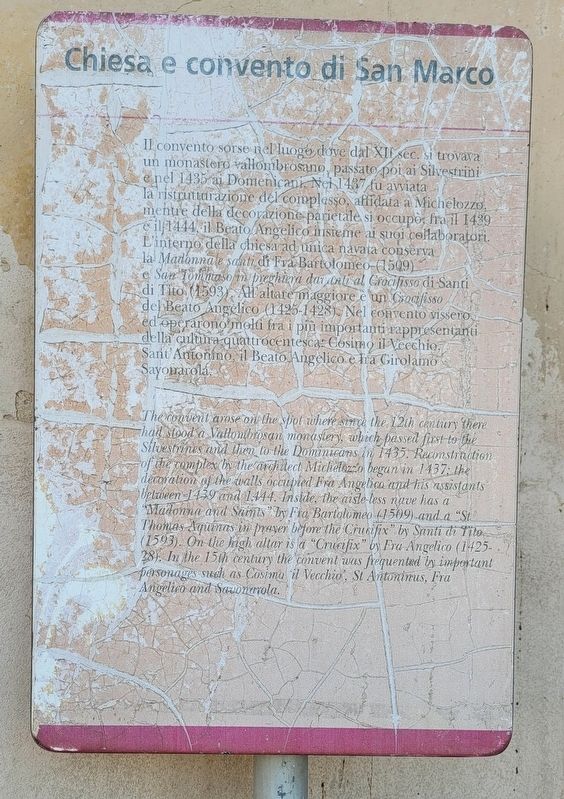 Chiesa e convento di San Marco
Il convento sorse nel luogo dove dal XII sec. si trovava
un monastero vallombrosano, passato poi ai Silvestrini
e nel 1435 ai Domenicani. Nel 1437 fu avviata
la ristrutturazione del complesso, affidata a Michelozzo,
mentre della decorazione parietale si occupò, fra il 1439
e il 1444, il Beato Angelico insieme ai suoi collaboratori.
L'interno della chiesa ad unica navata conserva
la Madonna e santi di Fra Bartolomeo (1509)
e San Tommaso in preghiera davanti al Crocifisso di Santi
di Tito (1593). All'altare maggiore è un Crocifisso
del Beato Angelico (1425-1428). Nel convento vissero
ed operarono molti fra i più importanti rappresentanti
della cultura quattrocentesca: Cosimo il Vecchio,
Sant'Antonino, il Beato Angelico e fra Girolamo
Savonarola.
The convent arose on the spot where since the 12th century there
had stood a Vallombrosan monastery, which passed first to the
Silvestrines and then to the Dominicans in 1435. Reconstruction
of the complex by the architect Michelozzo began in 1437; the
decoration of the walls occupied Fra Angelico and his assistants
between 1439 and 1444. Inside, the aisle-less nave has a
"Madonna and Saints" by Fra Bartolomeo (1509) and a "St
Thomas Aquinas in prayer before the Crucifix" by Santi di Tito
(1593). On the high altar is a "Crucifix" by Fra Angelico (1425-
28). In the 15th century the convent was frequented by important
personages such as Cosimo 'il Vecchio', St Antoninus, Fra
Angelico and Savonarola.